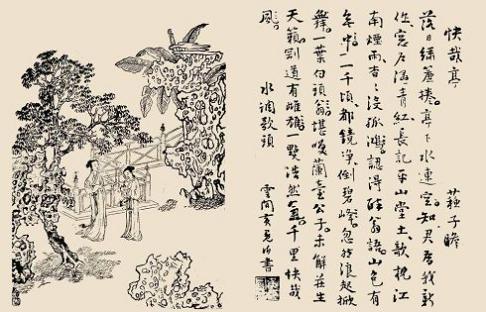 快哉亭 蘇子瞻
落日繡簾捲亭下水連空知君為我新
作窓戶濕青紅長記平山堂上欹枕江
南煙雨杳杳沒孤鴻認得醉翁語山色有
無中一千頃都鏡淨倒碧峰忽然浪起掀
舞一葉白頭翁堪笑蘭臺公子未解莊生
天籟剛道有雌雄一點浩然氣千里快哉
風 水調歌頭 雲間 書